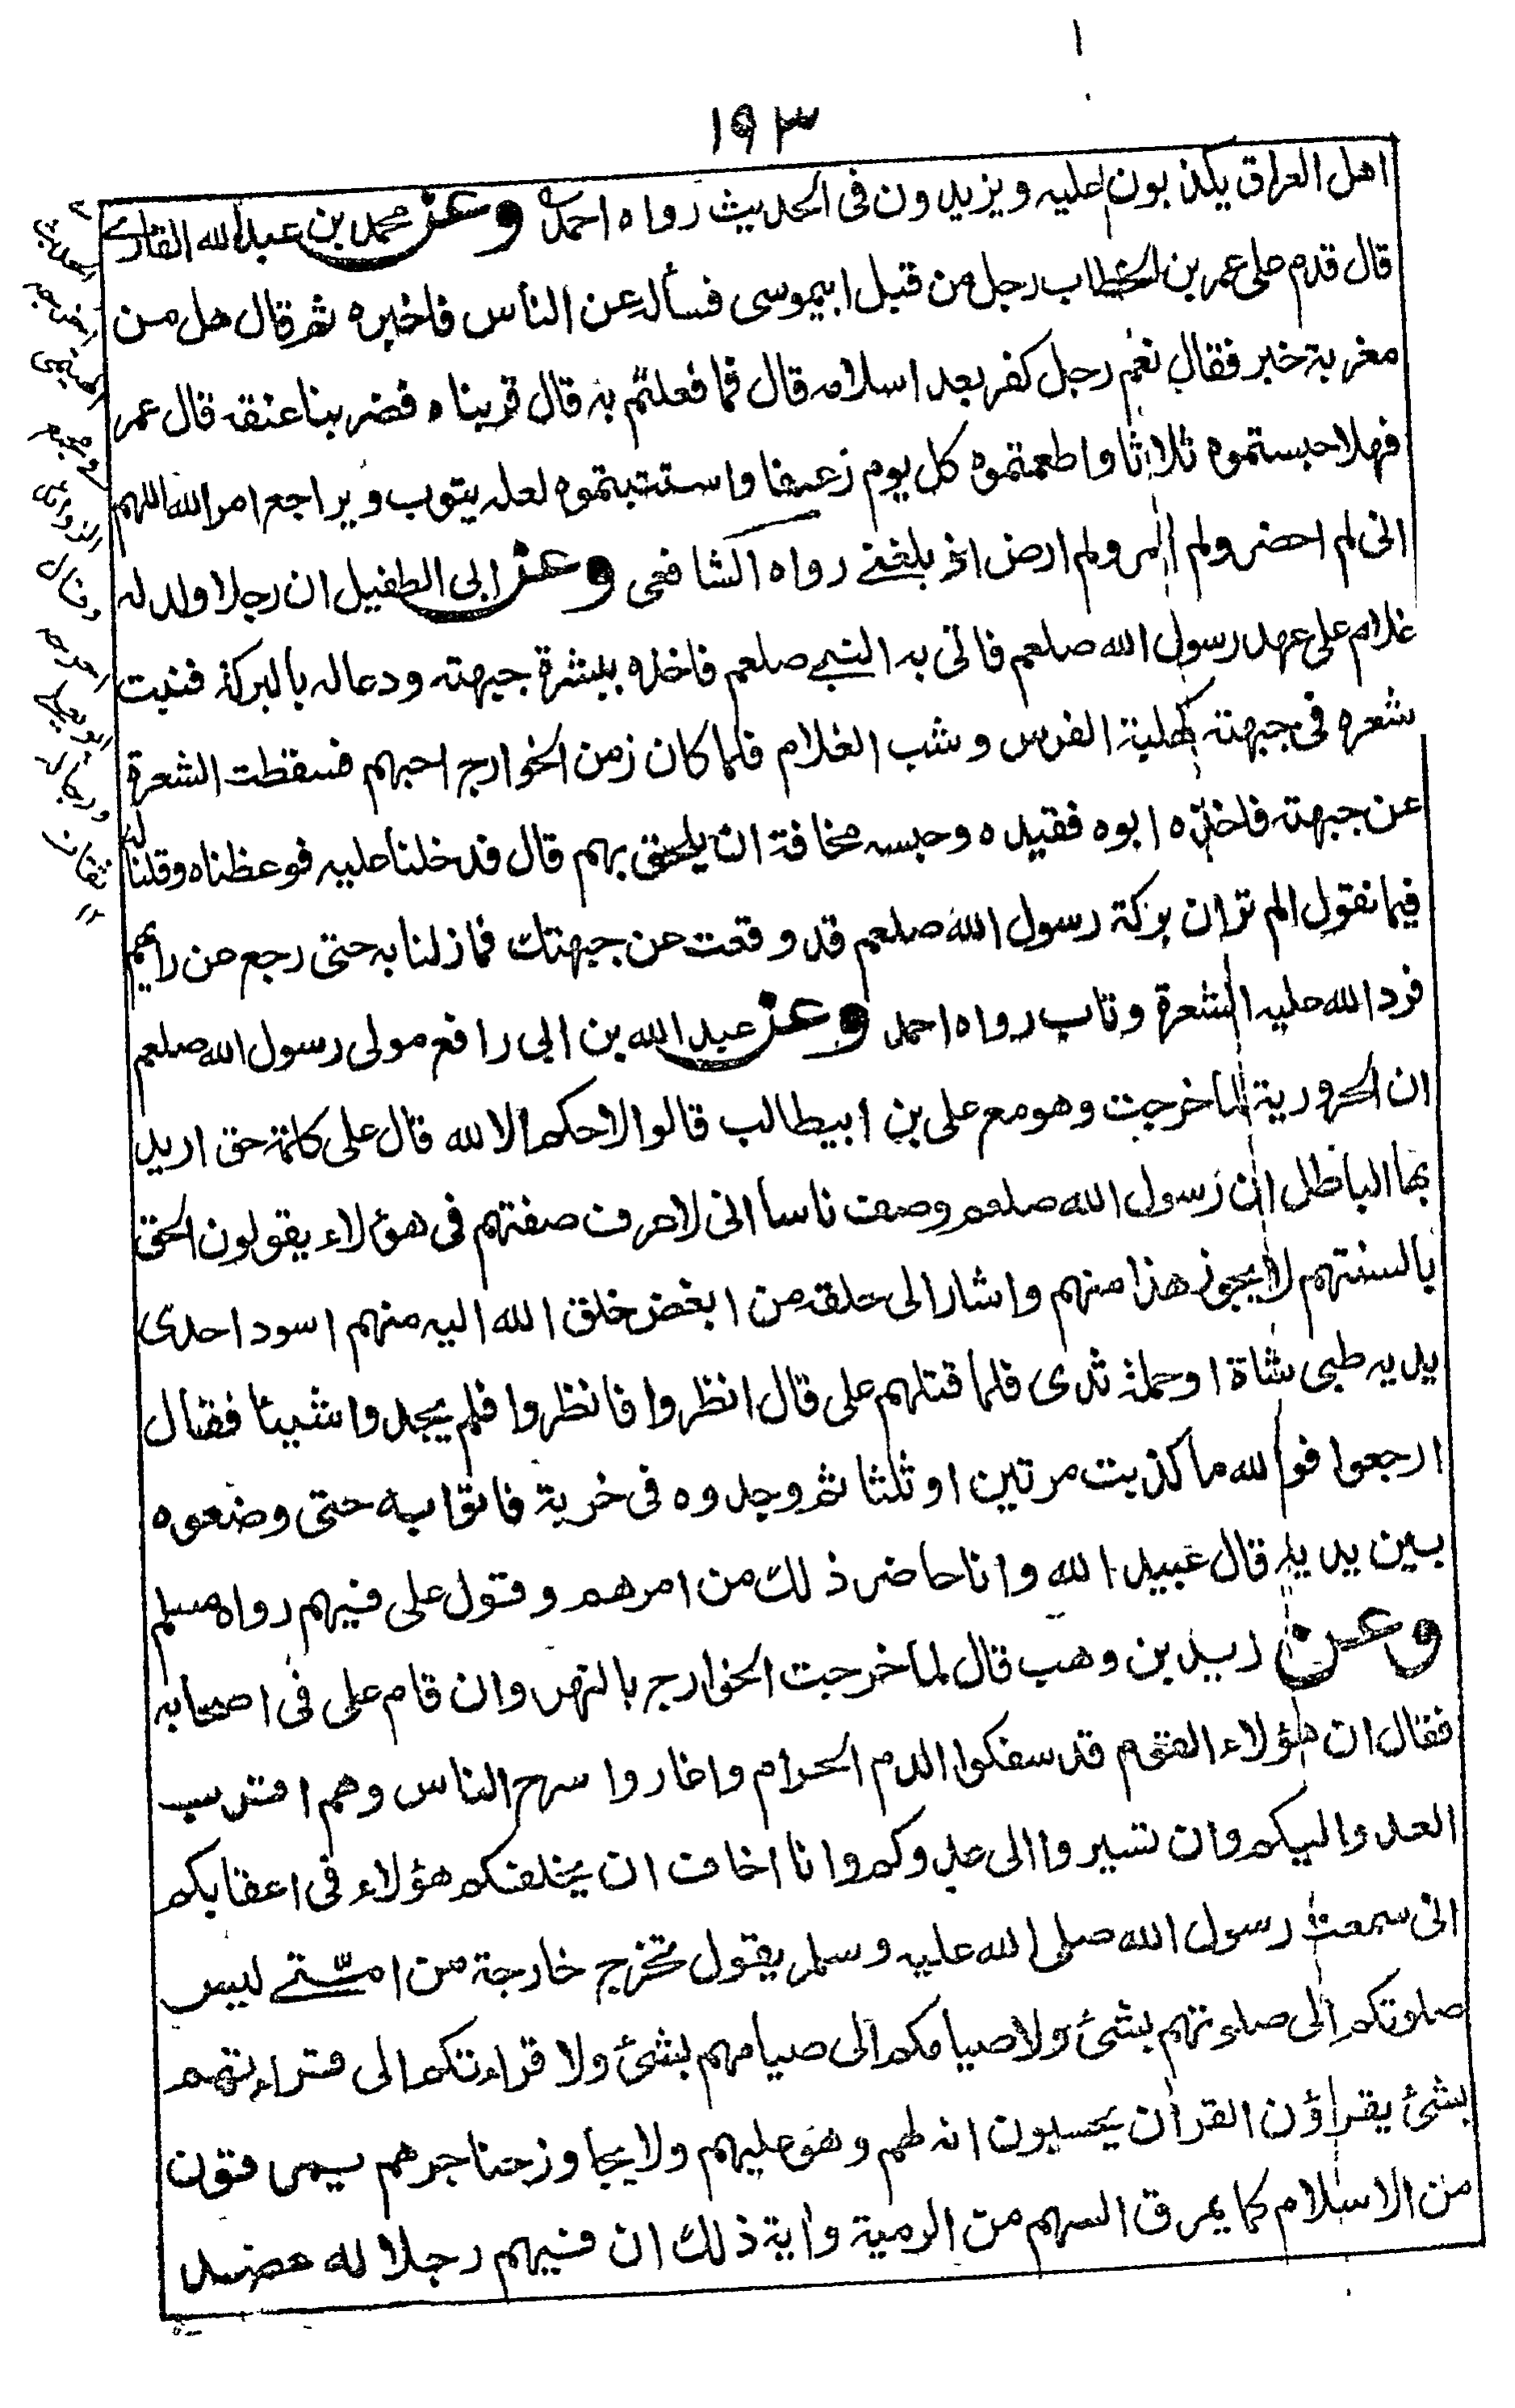 ١٩٣
اهل العراق يكذبون عليه ويزيدون فى الحديث رواه احمد وعن محمد بن عبد الله القارى
قال قدم على عمر بن الخطاب رجل من قبل ابيموسى فسأله عن الناس فاخبره ثم قال هل من
مغربة خبر فقال نعم رجل كفر بعد اسلامه قال فما فعلتم به قال قربناه فضربنا عنقه قال عمر
فهلا حبستموه ثلاثا واطعمتموه كل يوم رغيفا واستتبتموه لعله يتوب ويراجع امر الله اللهم
انى لم احضر ولم امر ولم ارض اذ بلغنى رواه الشافعى وعن ابى الطفيل ان رجلا ولد له
غلام على عهد رسول الله صلعم فاتى به النبى صلعم فاخذه ببشرة جبهته ودعا له بالبركة فنبت
شعره فى جبهته كهلبة الفرس وشب الغلام فلما كان زمن الخوارج احبهم فسقطت الشعرة
عن جبهته فاخذه ابوه فقيده وحبسه مخافة ان يلحق بهم قال فدخلنا عليه فوعظناه وقلنا له
فيما نقول الم تر ان بركة رسول الله صلعم قد وقعت عن جبهتك فما زلنا به حتى رجع عن رايهم
فرد الله عليه الشعرة وتاب رواه احمد وعن عبد الله بن ابى رافع مولى رسول الله صلعم
ان الحرورية لما خرجت وهو مع على بن ابيطالب قالوا لا حكم الا لله قال على كلمة حق اريد
بها الباطل ان رسول الله صلعم وصف ناسا انى لا عرف صفتهم فى هؤلاء يقولون الحق
بالسنتهم لا يجوز هذا منهم واشار الى حلقه من ابغض خلق الله اليه منهم اسود احدى
يديه طبى شاة او حلمة ثدى فلما قتلهم على قال انظروا فانظروا فلم يجدوا شيئا فقال
ارجعوا فوالله ما كذبت مرتين او ثلثا ثم وجدوه فى خربة فاتوا به حتى وضعوه
بين يديه قال عبيد الله وانا حاضر ذلك من امرهم وقول على فيهم رواه مسلم
وعن زيد بن وهب قال لما خرجت الخوارج بالنهروان قام على فى اصحابه
فقال ان هؤلاء القوم قد سفكوا الدم الحرام واغاروا سرح الناس وهم اقرب
العدو اليكم وان تسيروا الى عدوكم وانا اخاف ان يخلفكم هؤلاء فى اعقابكم
انى سمعت رسول الله صلى الله عليه وسلم يقول تخرج خارجة من امتى ليس
صلوتكم الى صلوتهم بشئ ولا صيامكم الى صيامهم بشئ ولا قراءتكم الى قراءتهم
بشئ يقراؤن القرآن يحسبون انه لهم وهو عليهم ولا يجاوز حناجرهم يمرقون
من الاسلام كما يمرق السهم من الرمية واية ذلك ان فيهم رجلا له عضد
وقال
ابو يعلى
ورجاله
ثقات